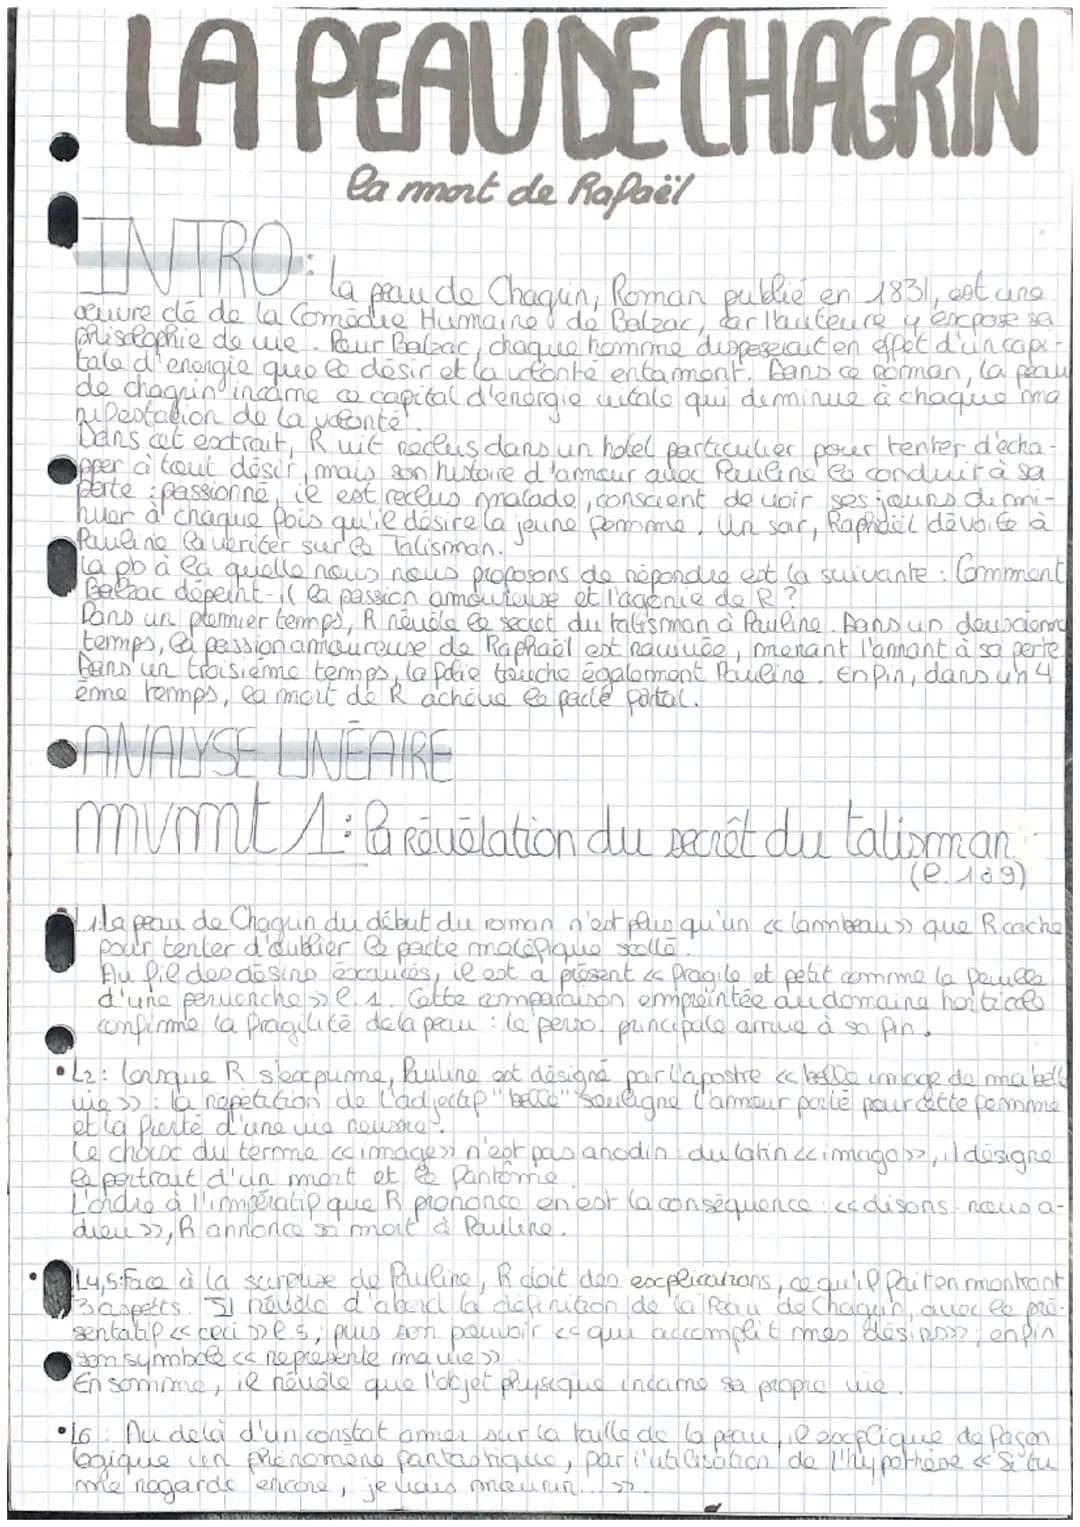 LA PEAU DE CHAGRIN
la mort de Rafaël
INTRO : La peau de Chagrin, Roman publié en 1831, est une
œuvre clé de la Comédie Humaine de Balzac, car l'auteure y expose sa
philisophie de vie. Pour Balzac, chaque homme disposerait en effet d'un capi-
tale d'energie que le désir et la volonté entament. Dans ce Roman, la peau
de chagrin incarne ce capital d'énergie vitale qui diminue à chaque ma
nifestation de la volonté.
Dans cet extrait, R vit reclus dans un hotel particulier pour tenter d'écha-
pper à tout désir, mais son histoire d'amour avec Pauline le conduit à sa
perte : passionné, il est reclus malade, conscient de voir ses jours dimi-
nuer à chaque fois qu'il désire la jeune femme. Un soir, Raphaël dévoile à
Pauline la vériter sur le Talisman.
La pb à la quelle nous nous proposons de répondre est la suivante : Comment
Balzac dépeint-il la passion amoureuse et l'agonie de R ?
Dans un premier temps, R révèle le secret du talisman à Pauline. Dans un deuxième
temps, la passion amoureuse de Raphaël est ravivée, menant l'amant à sa perte.
Dans un troisième temps, la folie touche également Pauline. Enfin, dans un 4
ème temps, la mort de R achève le pacte fatal.
ANALYSE LINÉAIRE
mvmt 1 : la révélation du secrêt du talisman
(l. 1 à 9)
L1: la peau de Chagrin du début du roman n'est plus qu'un << lambeau >> que R cache
pour tenter d'oublier le pacte maléfique scellé.
Au fil des désirs éxaucés, il est a présent << fragile et petit comme la feuille
d'une pervenche >> l. 1. Cette comparaison empreintée au domaine horticole
confirme la fragilité de la peau : le perso. principale arrive à sa fin.
• L2 : lorsque R s'exprime, Pauline est désigné par l'apostre << belle image de ma belle
vie >> : la répétition de l'adjectif "belle" souligne l'amour porté pour cette femme
et la fierté d'une vie
Le choix du terme << image >> n'est pas anodin : du latin << imago >>, il désigne
le portrait d'un mort et le fantôme.
L'ordre à l'impératif que R prononce en est la conséquence : << disons-nous a-
dieu >>, R annonce sa mort à Pauline.
• L4,5: Face à la surprise de Pauline, R doit des explications, ce qu'il fait en montrant
3 aspetts. Il révèle d'abord la définition de la Peau de Chagrin, avec le pré-
sentatif << ceci >> l 5, puis son pouvoir << qui accomplit mes désirs >>; enfin
son symbole << représente ma vie >>.
En somme, il révèle que l'objet physique incarne sa propre vie.
• L6 : Au delà d'un constat amer sur la taille de la peau, il explique de façon
logique un phénomène fantastique, par l'utilisation de l'hypothèse << Si tu
me regarde encore, je vais mourir... >>.